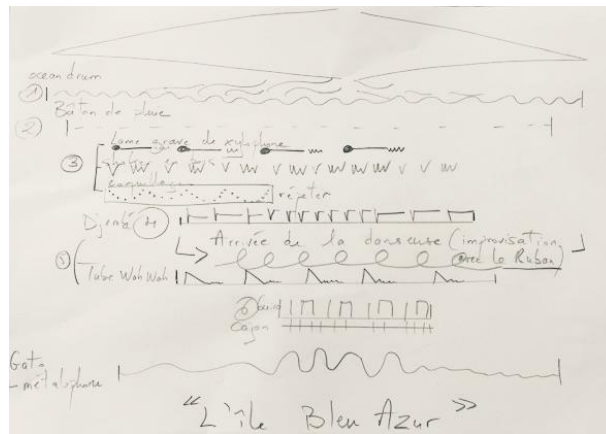 ocean drum
1
Bâton de pluie
2
Lame grave de xylophone
3
en bois
coquillages
répéter
Djembé 4
Arrivée de la danseuse (improvisation
avec le Ruban)
5
Tube Wah Wah
6
Cajon
Gato
métalophone
"L'île Bleu Azur"